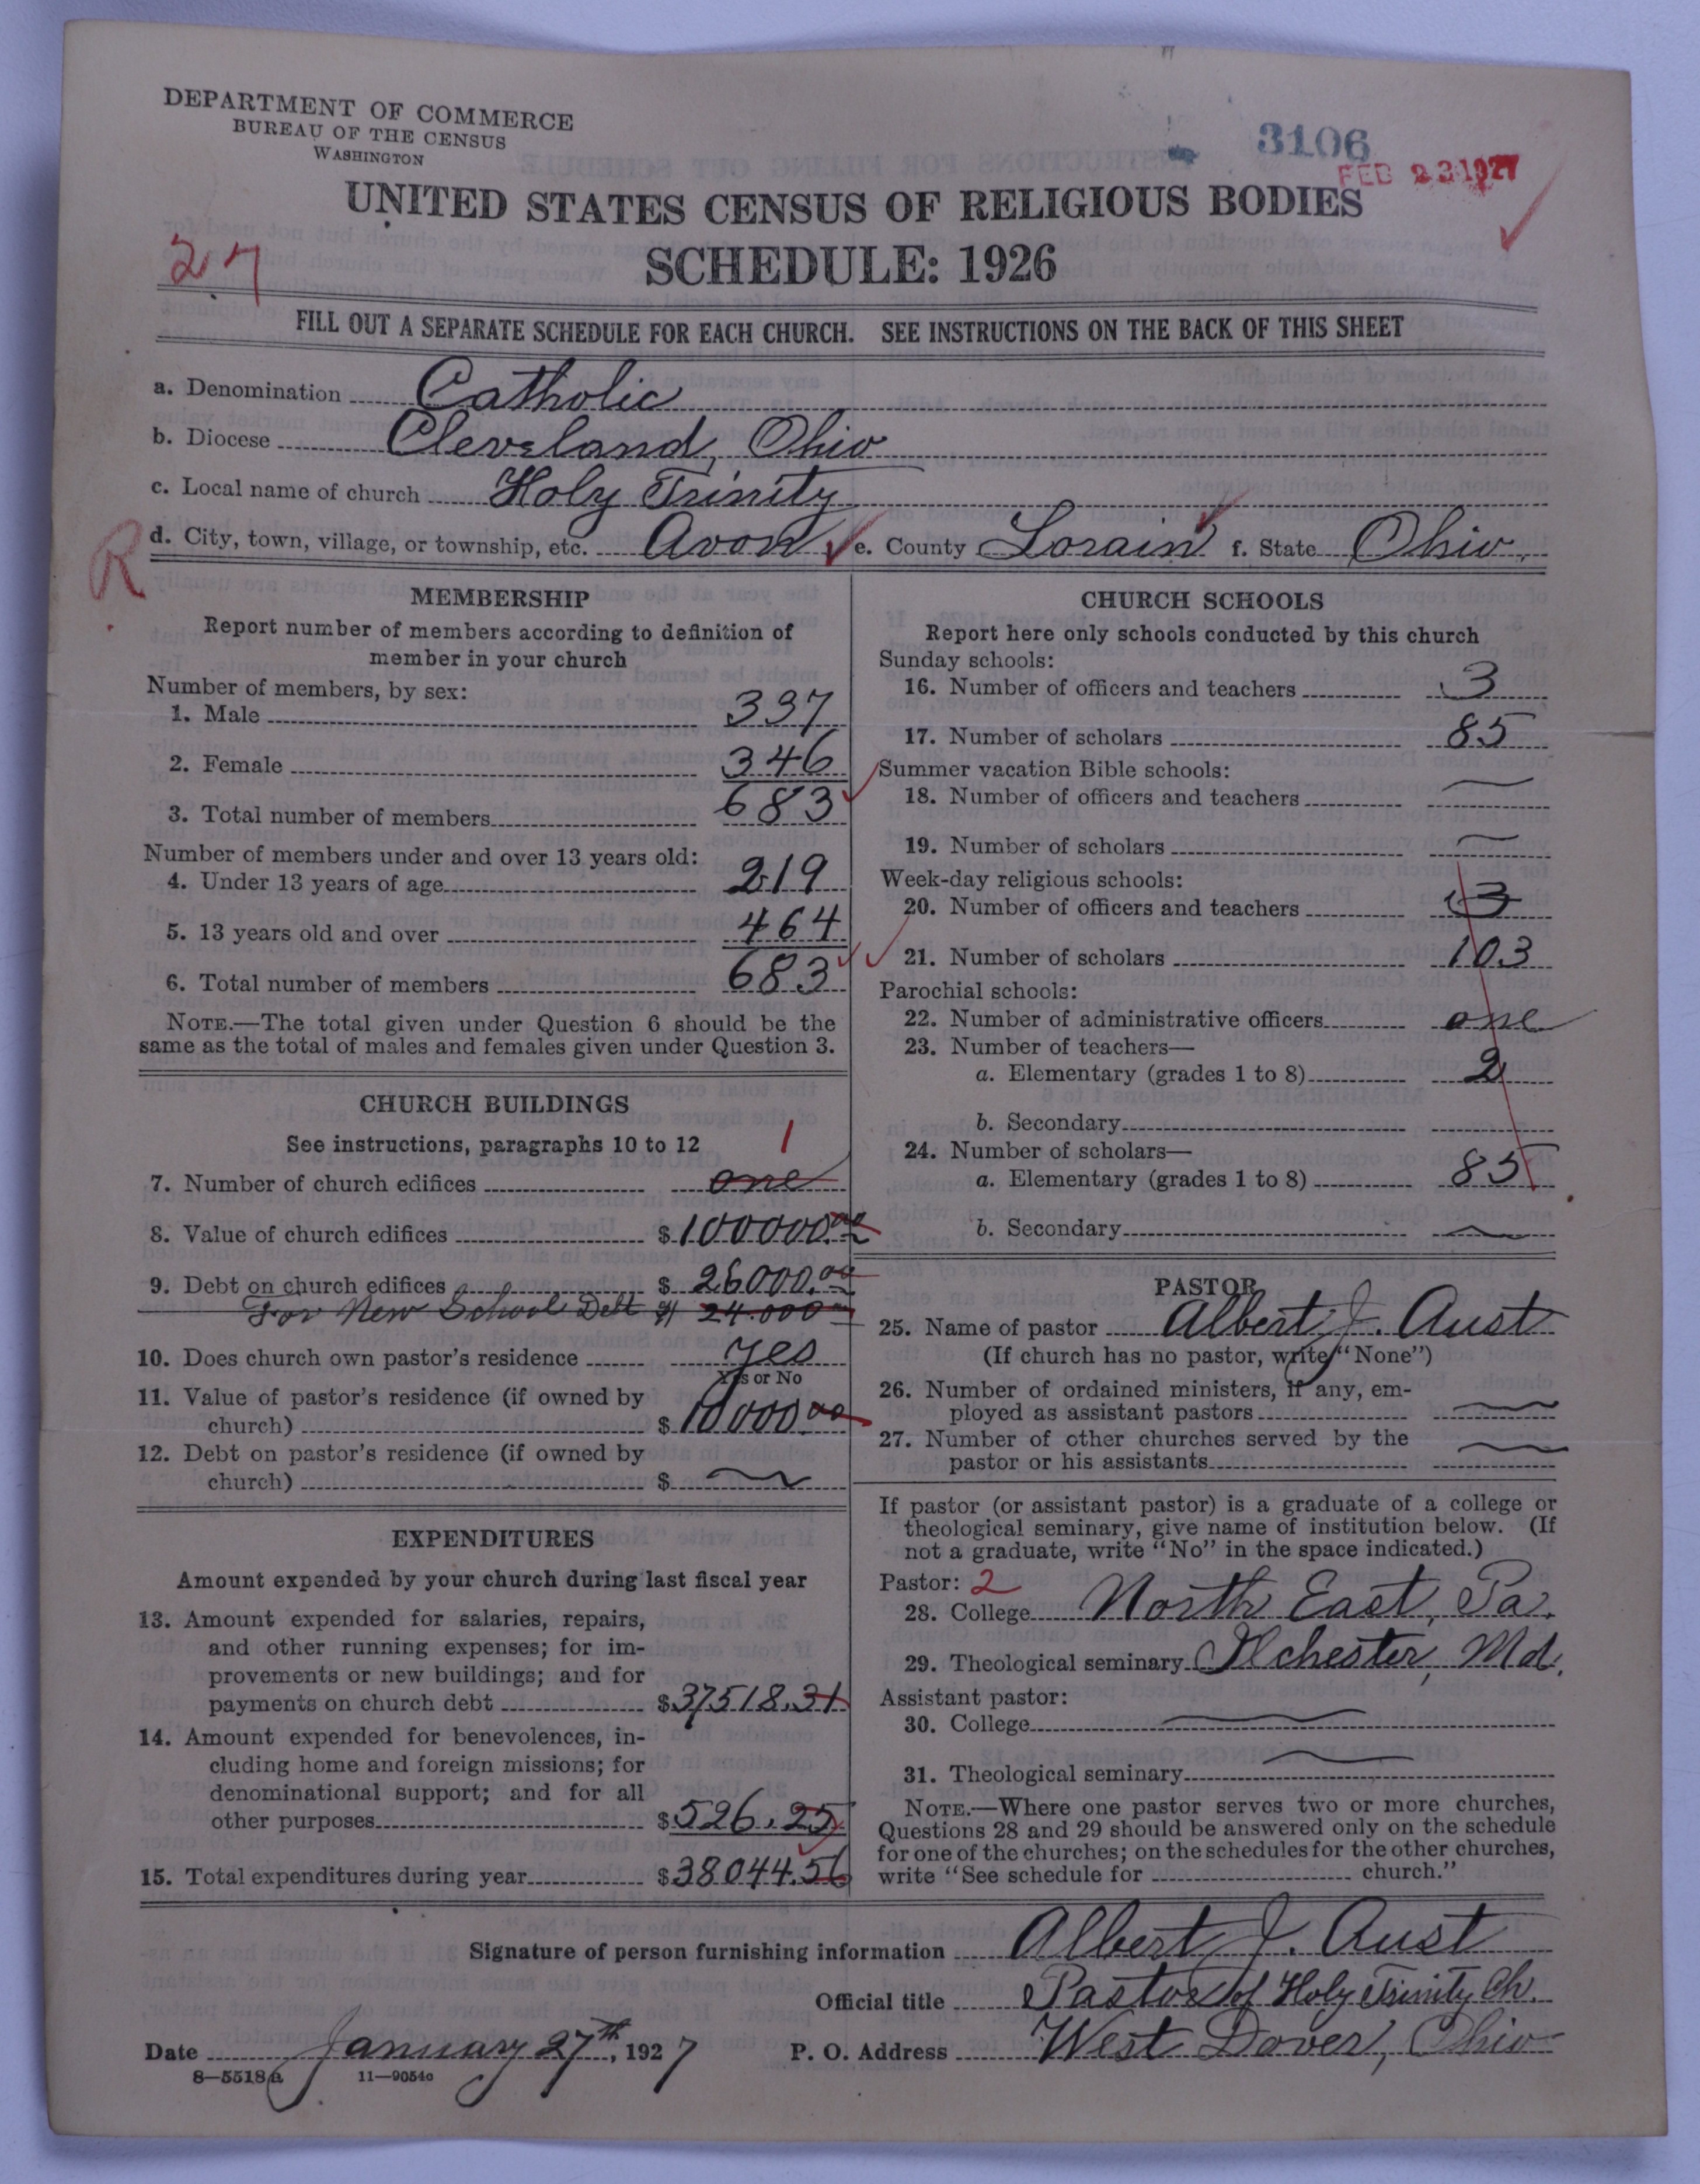 DEPARTMENT OF COMMERCE
BUREAU OF THE CENSUS
WASHINGTON
3106
FEB 23 1927
UNITED STATES CENSUS OF RELIGIOUS BODIES
27
SCHEDULE: 1926
FILL OUT A SEPARATE SCHEDULE FOR EACH CHURCH. SEE INSTRUCTIONS ON THE BACK OF THIS SHEET
a. Denomination Catholic
b. Diocese Cleveland, Ohio
c. Local name of church Holy Trinity
R
d. City, town, village, or township, etc. Avon e. County Lorain f. State Ohio.
MEMBERSHIP
Report number of members according to definition of
member in your church
Number of members, by sex:
1. Male 337
2. Female 346
3. Total number of members 683
Number of members under and over 13 years old:
4. Under 13 years of age 219
5. 13 years old and over 464
6. Total number of members 683
NOTE.—The total given under Question 6 should be the
same as the total of males and females given under Question 3.
CHURCH BUILDINGS
See instructions, paragraphs 10 to 12
1
7. Number of church edifices one
8. Value of church edifices $100000.00
9. Debt on church edifices $26000.00
For New School Debt $24.000
10. Does church own pastor's residence yes
Yes or No
11. Value of pastor's residence (if owned by
church) $10000.00
12. Debt on pastor's residence (if owned by
church) $
EXPENDITURES
Amount expended by your church during last fiscal year
13. Amount expended for salaries, repairs,
and other running expenses; for im-
provements or new buildings; and for
payments on church debt $37518.31
14. Amount expended for benevolences, in-
cluding home and foreign missions; for
denominational support; and for all
other purposes $526.25
15. Total expenditures during year $38044.56
CHURCH SCHOOLS
Report here only schools conducted by this church
Sunday schools:
16. Number of officers and teachers 3
17. Number of scholars 85
Summer vacation Bible schools:
18. Number of officers and teachers
19. Number of scholars
Week-day religious schools:
20. Number of officers and teachers 3
21. Number of scholars 103
Parochial schools:
22. Number of administrative officers one
23. Number of teachers—
a. Elementary (grades 1 to 8) 2
b. Secondary
24. Number of scholars—
a. Elementary (grades 1 to 8) 85
b. Secondary
PASTOR
25. Name of pastor Albert J. Aust
(If church has no pastor, write "None")
26. Number of ordained ministers, if any, em-
ployed as assistant pastors
27. Number of other churches served by the
pastor or his assistants
If pastor (or assistant pastor) is a graduate of a college or
theological seminary, give name of institution below. (If
not a graduate, write "No" in the space indicated.)
Pastor: 2
28. College North East, Pa.
29. Theological seminary Ilchester, Md.
Assistant pastor:
30. College
31. Theological seminary
NOTE.—Where one pastor serves two or more churches,
Questions 28 and 29 should be answered only on the schedule
for one of the churches; on the schedules for the other churches,
write "See schedule for church."
Signature of person furnishing information Albert J. Aust
Official title Pastor of Holy Trinity Ch.
Date January 27th, 1927 P. O. Address West Dover, Ohio
8—5518a 11—9054o